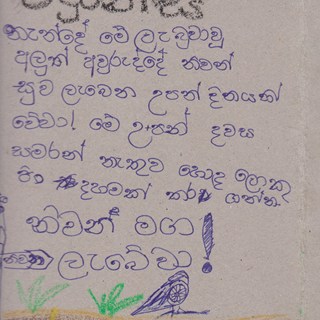 නැන්දේ මේ ලැබුවාවූ
අලුත් අවුරුද්දේ නිවන්
සුව ලැබෙන උපන් දිනයක්
වේවා! මේ උපන් දවස
සමරන් නැතුව හොඳ ලොකු
දහමක් කර ගන්න
නිවන් මග
ලැබේවා!
නිවන